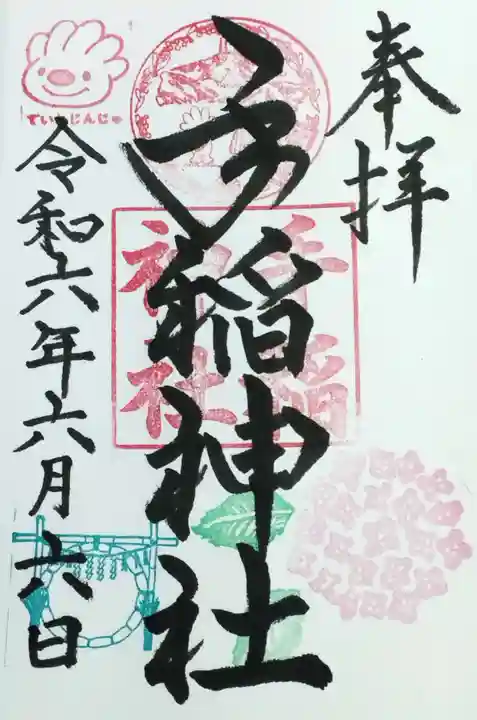 奉拝
手稲神社
手稲
神社
令和六年六月六日
ていねじんじゃ